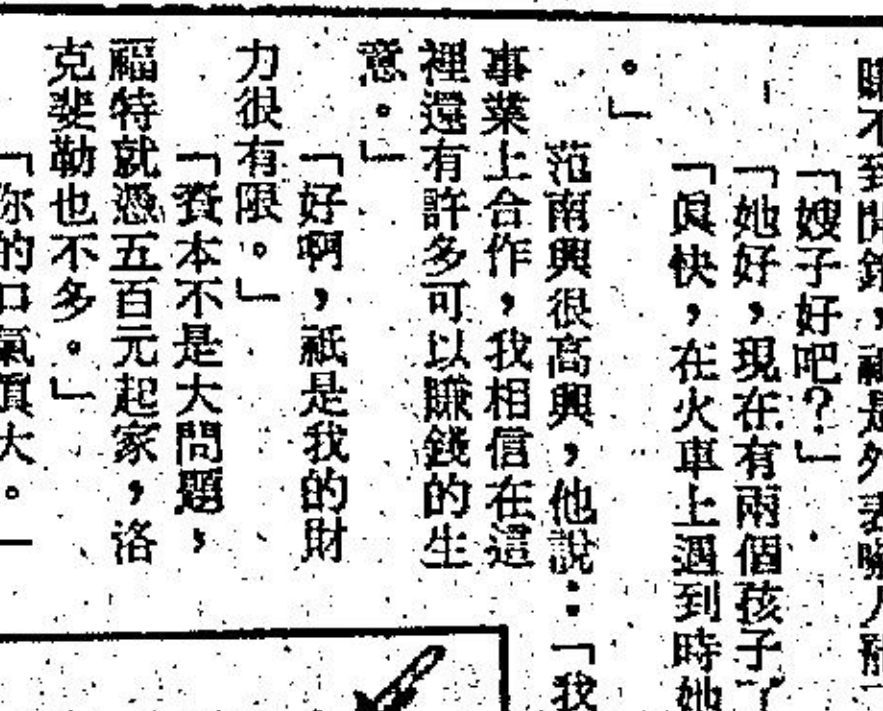 「嫂子好吧?」
「她好,現在有兩個孩子了
。」
「眞快,在火車上遇到時她
范南興很高興,他說:「我
事業上合作,我相信在這
裡還有許多可以賺錢的生
意。」
「好啊,祇是我的財
力很有限。」
「資本不是大問題,
福特就憑五百元起家,洛
克斐勒也不多。」
「你的口氣眞大。